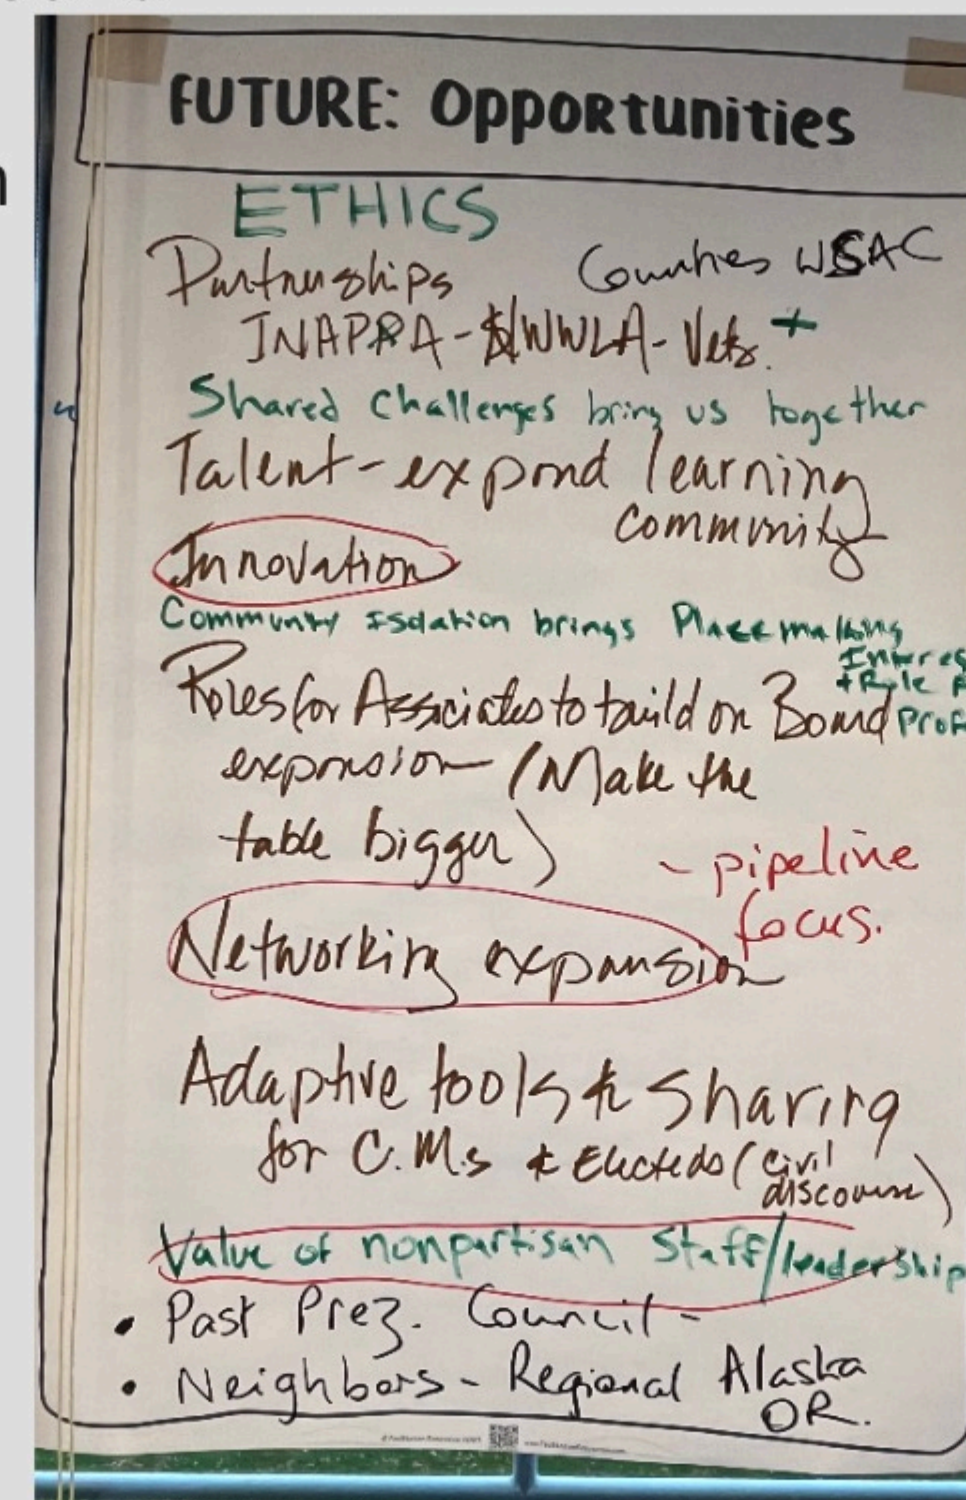 FUTURE: Opportunities
ETHICS
Partnerships Counties WSAC
INAPRA - NWWLA - Vets. +
Shared Challenges bring us together
Talent - expand learning
community
Innovation
Community Isolation brings Placemaking
+ Role
Roles for Associates to build on Board Prof
expansion (Make the
table bigger)
- pipeline
focus.
Networking expansion
Adaptive tools & sharing
for C.M.s & Electeds (civil
discourse)
Value of nonpartisan Staff/leadership
• Past Prez. Council -
• Neighbors - Regional Alaska
OR.